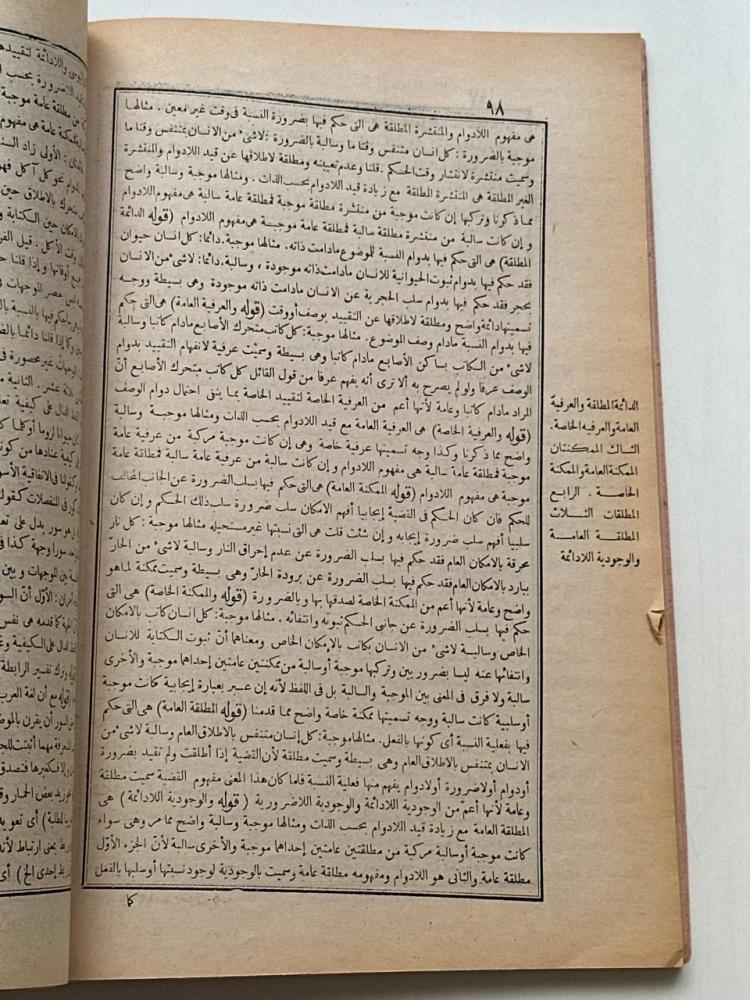 ٩٨
هى مفهوم اللادوام والمنتشرة المطلقة هى التى حكم فيها بضرورة النسبة فى وقت غير معين . مثالها
موجبة بالضرورة : كل انسان متنفس وقتا ما وسالبة بالضرورة : لاشىء من الانسان بمتنفس وقتا ما
وسميت منتشرة لانتشار وقت الحكم . قلنا وعدم تعيينه ومطلقة لاطلاقها عن قيد اللادوام والمنتشرة
الغير المطلقة هى المنتشرة المطلقة مع زيادة قيد اللادوام بحسب الذات . ومثالها موجبة وسالبة واضح
مما ذكرنا وتركيبها إن كانت موجبة من منتشرة مطلقة موجبة فمطلقة عامة سالبة هى مفهوم اللادوام
و إن كانت سالبة من منتشرة مطلقة سالبة فمطلقة عامة موجبة هى مفهوم اللادوام (قوله الدائمة
المطلقة) هى التى حكم فيها بدوام النسبة للموضوع مادامت ذاته. مثالها موجبة.دائما: كل انسان حيوان
فقد حكم فيها بدوام ثبوت الحيوانية للانسان مادامت ذاته موجودة ، وسالبة.دائما: لاشىء من الانسان
بحجر فقد حكم فيها بدوام سلب الحجرية عن الانسان مادامت ذاته موجودة وهى بسيطة ووجه
تسميتها دائمة واضح ومطلقة لاطلاقها عن التقييد بوصف أو وقت (قوله والعرفية العامة) هى التى حكم
فيها بدوام النسبة مادام وصف الموضوع. مثالها موجبة: كل كاتب متحرك الأصابع مادام كاتبا وسالبة
لاشىء من الكاتب بساكن الأصابع مادام كاتبا وهى بسيطة وسميت عرفية لانفهام التقييد بدوام
الوصف عرفا ولو لم يصرح به ألا ترى أنه يفهم عرفا من قول القائل كل كاتب متحرك الأصابع أنّ
المراد مادام كاتبا وعامة لأنها أعم من العرفية الخاصة لتقييد الخاصة بما ينفى احتمال دوام الوصف
(قوله والعرفية الخاصة) هى العرفية العامة مع قيد اللادوام بحسب الذات ومثالها موجبة وسالبة
واضح مما ذكرنا وكذا وجه تسميتها عرفية خاصة وهى إن كانت موجبة مركبة من عرفية عامة
موجبة فمطلقة عامة سالبة هى مفهوم اللادوام و إن كانت سالبة من عرفية عامة سالبة فمطلقة عامة
موجبة هى مفهوم اللادوام (قوله الممكنة العامة) هى التى حكم فيها بسلب الضرورة عن الجانب المخالف
للحكم فان كان الحكم فى القضية إيجابيا أفهم الامكان سلب ضرورة سلب ذلك الحكم و إن كان
سلبيا أفهم سلب ضرورة إيجابه و إن شئت قلت هى التى نسبتها غير مستحيلة مثالها موجبة : كل نار
محرقة بالامكان العام فقد حكم فيها بسلب الضرورة عن عدم إحراق النار وسالبة لاشىء من الحارّ
ببارد بالامكان العام فقد حكم فيها بسلب الضرورة عن برودة الحارّ وهى بسيطة وسميت ممكنة لما هو
واضح وعامة لأنها أعم من الممكنة الخاصة لصدقها بها وبالضرورة (قوله والممكنة الخاصة) هى التى
حكم فيها بسلب الضرورة عن جانبى الحكم ثبوته وانتفائه . مثالها موجبة: كل انسان كاتب بالامكان
الخاص وسالبة لاشىء من الانسان بكاتب بالإمكان الخاص ومعناهما أنّ ثبوت الكتابة للانسان
وانتفائها عنه ليسا بضرور بين وتركيبها موجبة أوسالبة من ممكنتين عامتين إحداهما موجبة والأخرى
سالبة ولا فرق فى المعنى بين الموجبة والسالبة بل فى اللفظ لأنه إن عبر بعبارة إيجابية كانت موجبة
أوسلبية كانت سالبة ووجه تسميتها ممكنة خاصة واضح مما قدمنا (قوله المطلقة العامة) هى التى حكم
فيها بفعلية النسبة أى كونها بالفعل. مثالها موجبة: كل إنسان متنفس بالاطلاق العام وسالبة لاشىء من
الانسان بمتنفس بالاطلاق العام وهى بسيطة وسميت مطلقة لأن القضية إذا أطلقت ولم تقيد بضرورة
أودوام أولاضرورة أولادوام يفهم منها فعلية النسبة فلما كان هذا المعنى مفهوم القضية سميت مطلقة
وعامة لأنها أعمّ من الوجودية اللادائمة والوجودية اللاضرورية (قوله والوجودية اللادائمة) هى
المطلقة العامة مع زيادة قيد اللادوام بحسب الذات ومثالها موجبة وسالبة واضح مما مر وهى سواء
كانت موجبة أوسالبة مركبة من مطلقتين عامتين إحداهما موجبة والأخرى سالبة لأنّ الجزء الأوّل
مطلقة عامة والثانى هو اللادوام ومفهومه مطلقة عامة وسميت بالوجودية لوجود نسبتها أوسلبها بالفعل
كما
الدائمة المطلقة والعرفية
العامة والعرفيه الخاصة.
الثالث الممكنتان
الممكنة العامة والممكنة
الخاصة . الرابع
المطلقات الثلاث
المطلقة العامة
والوجودية اللادائمة